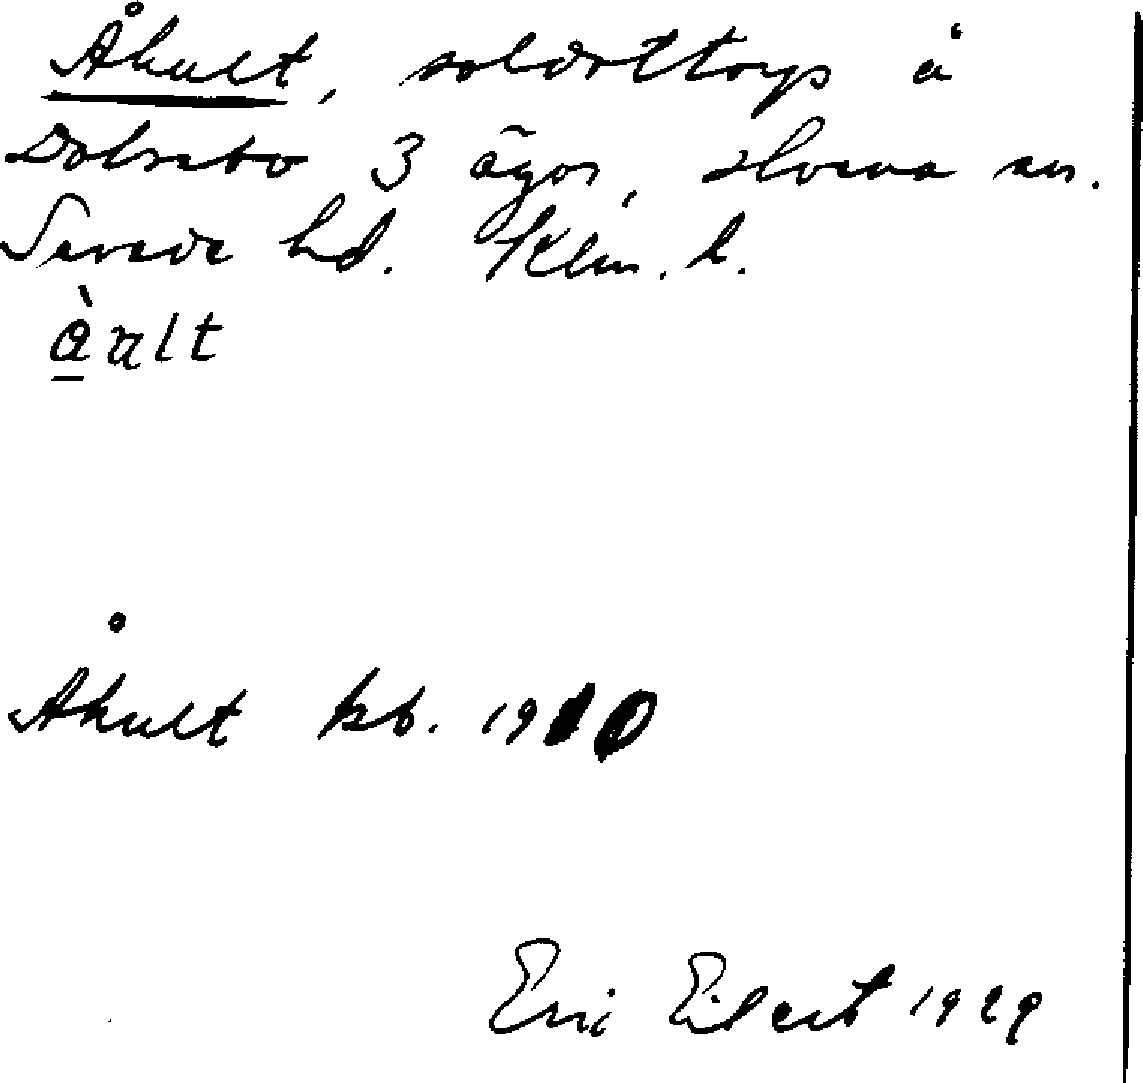 Åhult, soldattorp å
Dalsebo 3 ägor, Hvena sn.
Sevede hd. Klm. l.
Åhult kb. 1910
Eric Eilert 1929